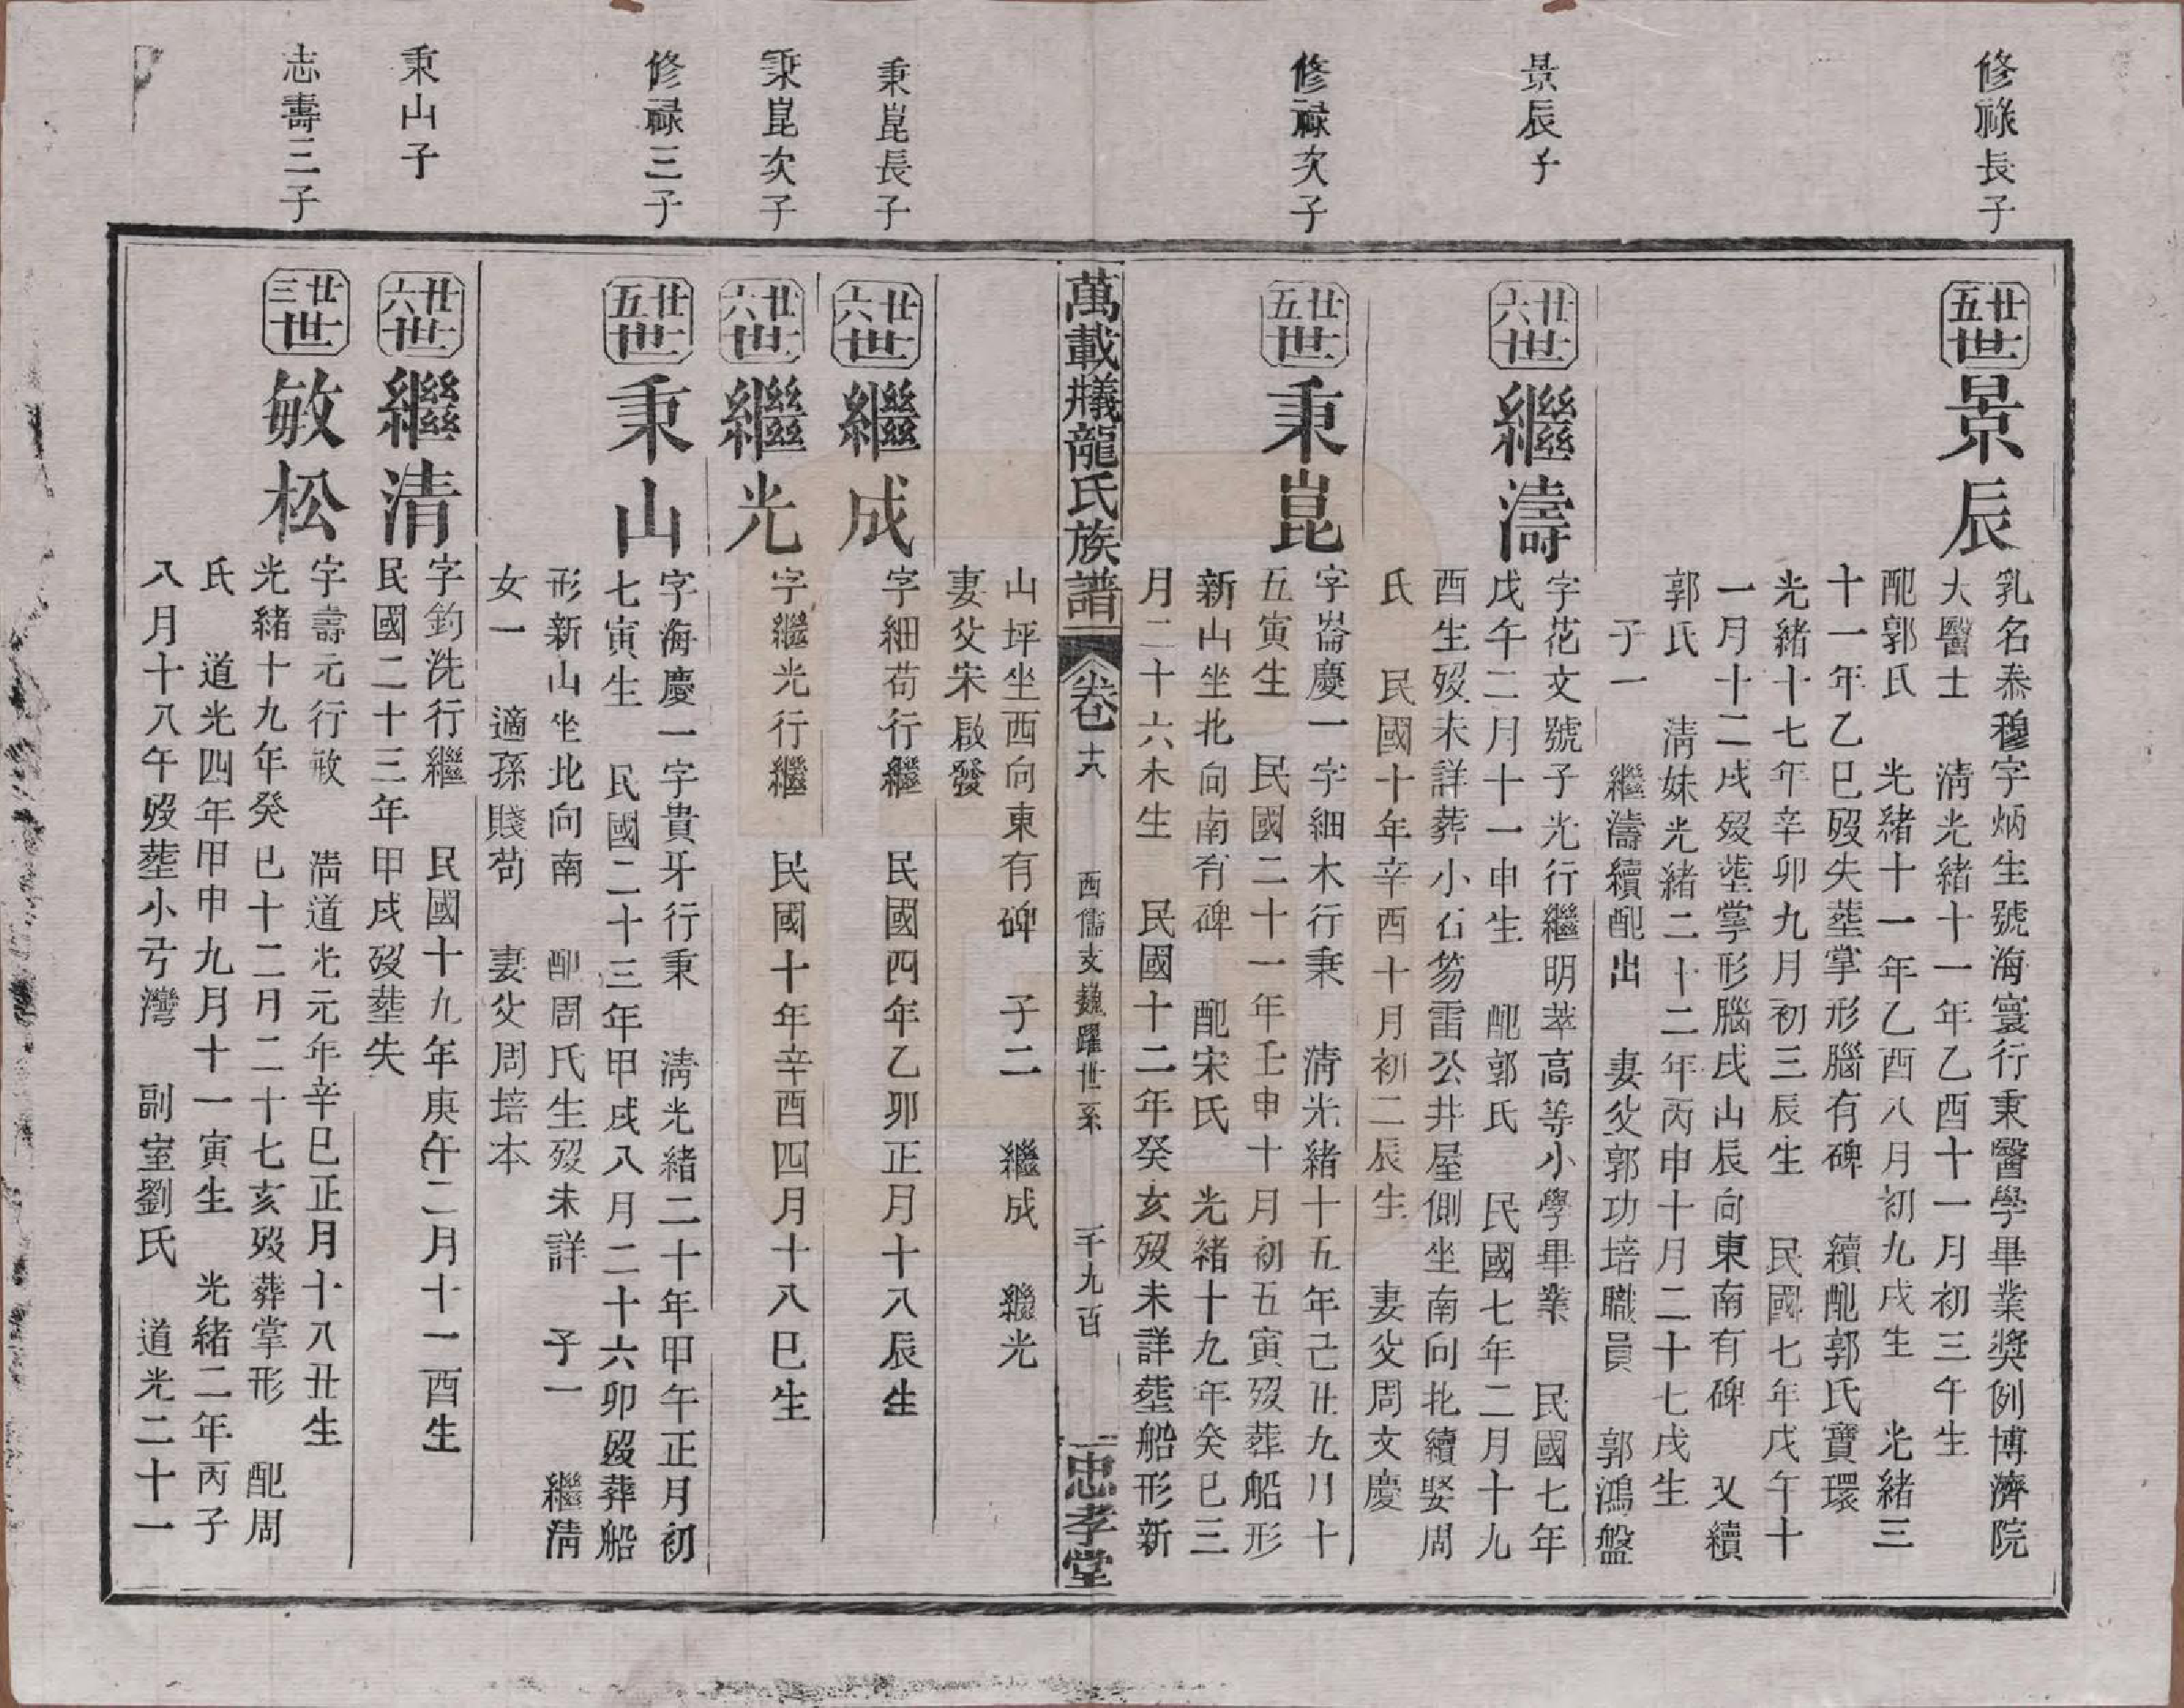 修祿長子
廿五世 景辰
乳名恭穆字炳生號海寰行秉醫學畢業獎例博濟院
大醫士 清光緒十一年乙酉十一月初三午生
配郭氏 光緒十一年乙酉八月初九戌生 光緒三
十一年乙巳歿失塟掌形腦有碑 續配郭氏寶環
光緒十七年辛卯九月初三辰生 民國七年戊午十
一月十二戌歿塟掌形腦戌山辰向東南有碑 又續
郭氏 清妹光緒二十二年丙申十月二十七戌生
子一 繼濤續配出 妻父郭功培職員 郭鴻盤
景辰子
廿六世 繼濤
字花文號子光行繼明萃高等小學畢業 民國七年
戊午二月十一申生 配郭氏 民國七年二月十九
酉生歿未詳葬小石笏雷公井屋側坐南向北續娶周
氏 民國十年辛酉十月初二辰生 妻父周文慶
修祿次子
廿五世 秉崑
字崙慶一字細木行秉 清光緒十五年己丑九月十
五寅生 民國二十一年壬申十月初五寅歿葬船形
新山坐北向南有碑 配宋氏 光緒十九年癸巳三
月二十六未生 民國十二年癸亥歿未詳塟船形新
萬載龍氏族譜 卷十八 西儒支巍躍世系 千九百 忠孝堂
山坪坐西向東有碑 子二 繼成 繼光
妻父宋啟發
秉崑長子
廿六世 繼成
字細苟行繼 民國四年乙卯正月十八辰生
秉崑次子
廿六世 繼光
字繼光行繼 民國十年辛酉四月十八巳生
修祿三子
廿五世 秉山
字海慶一字貴牙行秉 清光緒二十年甲午正月初
七寅生 民國二十三年甲戌八月二十六卯歿葬船
形新山坐北向南 配周氏生歿未詳 子一 繼清
女一 適孫賤苟 妻父周培本
秉山子
廿六世 繼清
字鈞洗行繼 民國十九年庚午二月十一酉生
民國二十三年甲戌歿塟失
志壽三子
廿三世 敏松
字壽元行敏 清道光元年辛巳正月十八丑生
光緒十九年癸巳十二月二十七亥歿葬掌形 配周
氏 道光四年甲申九月十一寅生 光緒二年丙子
八月十八午歿塟小弓灣 副室劉氏 道光二十一